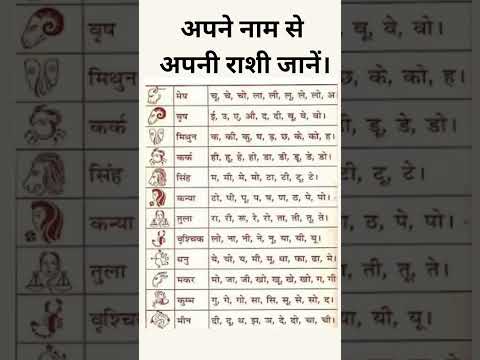 अपने नाम से
अपनी राशी जानें।
मेष चू, चे, चो, ला, ली, लू, ले, लो, अ
वृष ई, उ, ए, औ, द, दी, बू, वे, वो।
मिथुन क, की, कु, घ, ङ, छ, के, को, ह।
कर्क ही, हू, हे, हो, डा, डी, डू, डे, डो।
सिंह म, मी, मे, मो, टा, टी, टू, टे।
कन्या टो, पी, पू, प, ष, ण, ठ, पे, पो।
तुला रा, री, रू, रे, रो, ता, ती, तू, ते।
वृश्चिक लो, ना, नी, ने, नू, या, यी, यू।
धनु ये, यो, य, मी, मू, धा, फा, ढा, मे।
मकर मो, जा, जी, खो, खू, खे, खो, ग, गी
कुम्भ गु, गे, गो, सा, सि, सू, से, सो, द।
मीन दी, दू, थ, झ, ञ, दे, दो, चा, ची।
वृष
मिथुन
कर्क
सिंह
कन्या
तुला
वृश्चिक
बू, वे, वो।
छ, के, को, ह।
डू, डे, डो।
टू, टे।
ठ, पे, पो।
ती, तू, ते।
यी, यू।